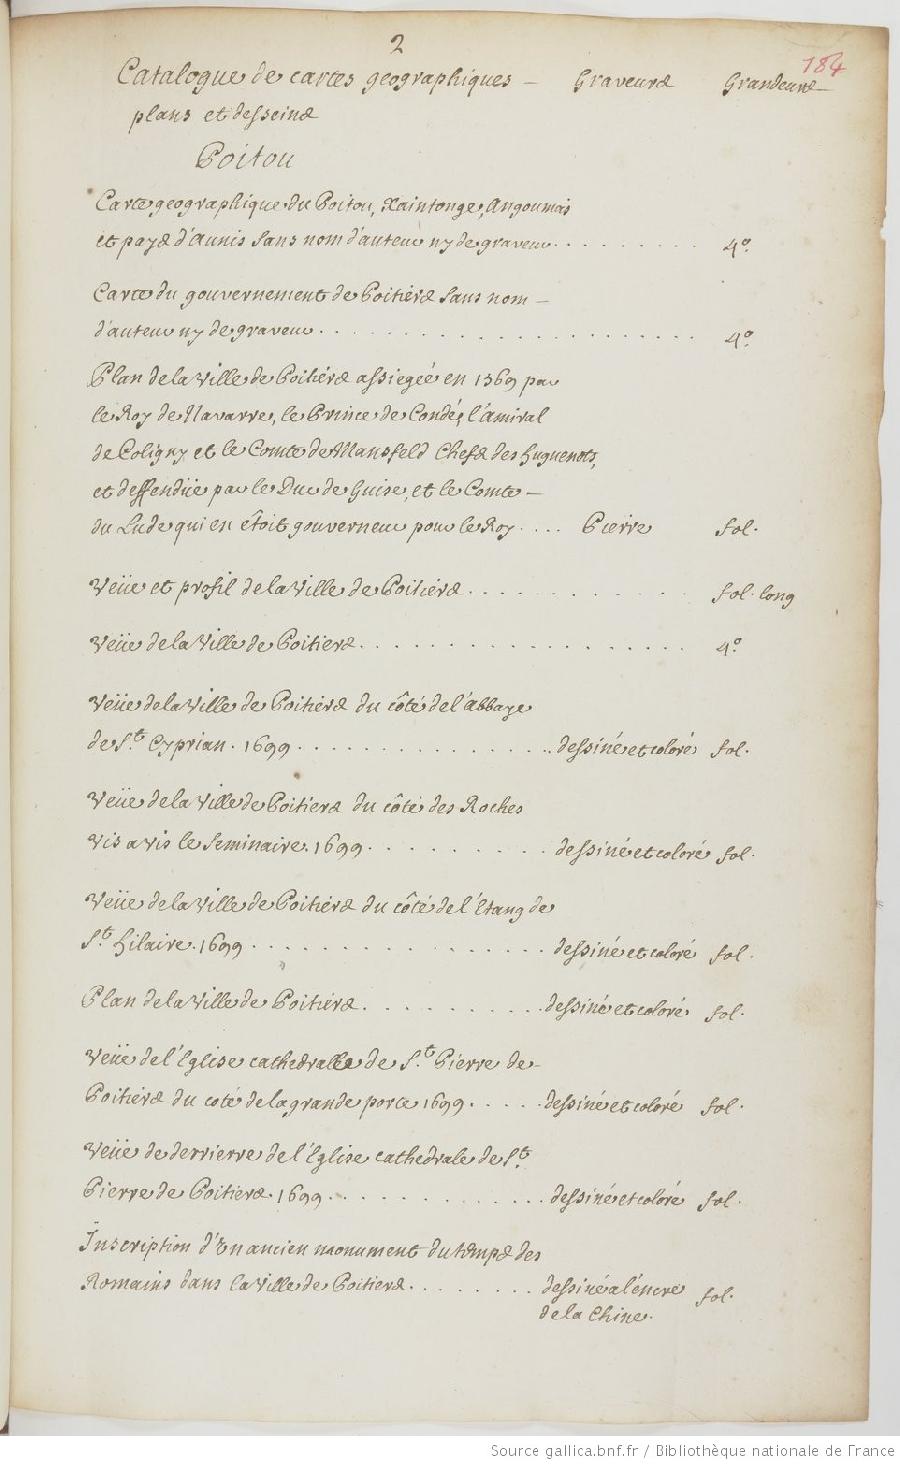 2
184
Catalogue de cartes geographiques — Graveurs Grandeurs
plans et desseins
Poitou
Carte geographique du Poitou, Xaintonge, Angoumois
et pays d'Aunis sans nom d'auteur ny de graveur . . . . . . . . . 4º.
Carte du gouvernement de Poitiers sans nom —
d'auteur ny de graveur . . . . . . . . . . . . . . . . . . . . 4º.
Plan de la Ville de Poitiers assiegée en 1569 par
le Roy de Navarre, le Prince de Condé, l'amiral
de Coligny et le Comte de Mansfeld Chefs des huguenots,
et deffendüe par le Duc de Guise, et le Comte —
du Lude qui en étoit gouverneur pour le Roy . . . . Pierre fol.
Veüe et profil de la Ville de Poitiers . . . . . . . . . . . . fol. long
Veüe de la Ville de Poitiers . . . . . . . . . . . . . . . . . 4º
Veüe de la Ville de Poitiers du côté de l'abbaye
de St. Cyprian . 1699 . . . . . . . . . . . . . . . dessiné et coloré fol.
Veüe de la Ville de Poitiers du côté des Roches
vis a vis le Seminaire . 1699 . . . . . . . . . . dessiné et coloré fol.
Veüe de la Ville de Poitiers du côté de l'Etang de
St. hilaire . 1699 . . . . . . . . . . . . . . . . dessiné et coloré fol.
Plan de la Ville de Poitiers . . . . . . . . . . dessiné et coloré fol.
Veüe de l'Eglise cathedralle de St. Pierre de —
Poitiers du coté de la grande porte 1699 . . . . . dessiné et coloré fol.
Veüe de derrierre de l'Eglise cathedrale de St.
Pierre de Poitiers . 1699 . . . . . . . . . . . . dessiné et coloré fol.
Inscription d'En ancien monument du temps des
Romains dans la Ville de Poitiers . . . . . . . . dessiné a l'encre fol.
de la Chine.
Source gallica.bnf.fr / Bibliothèque nationale de France